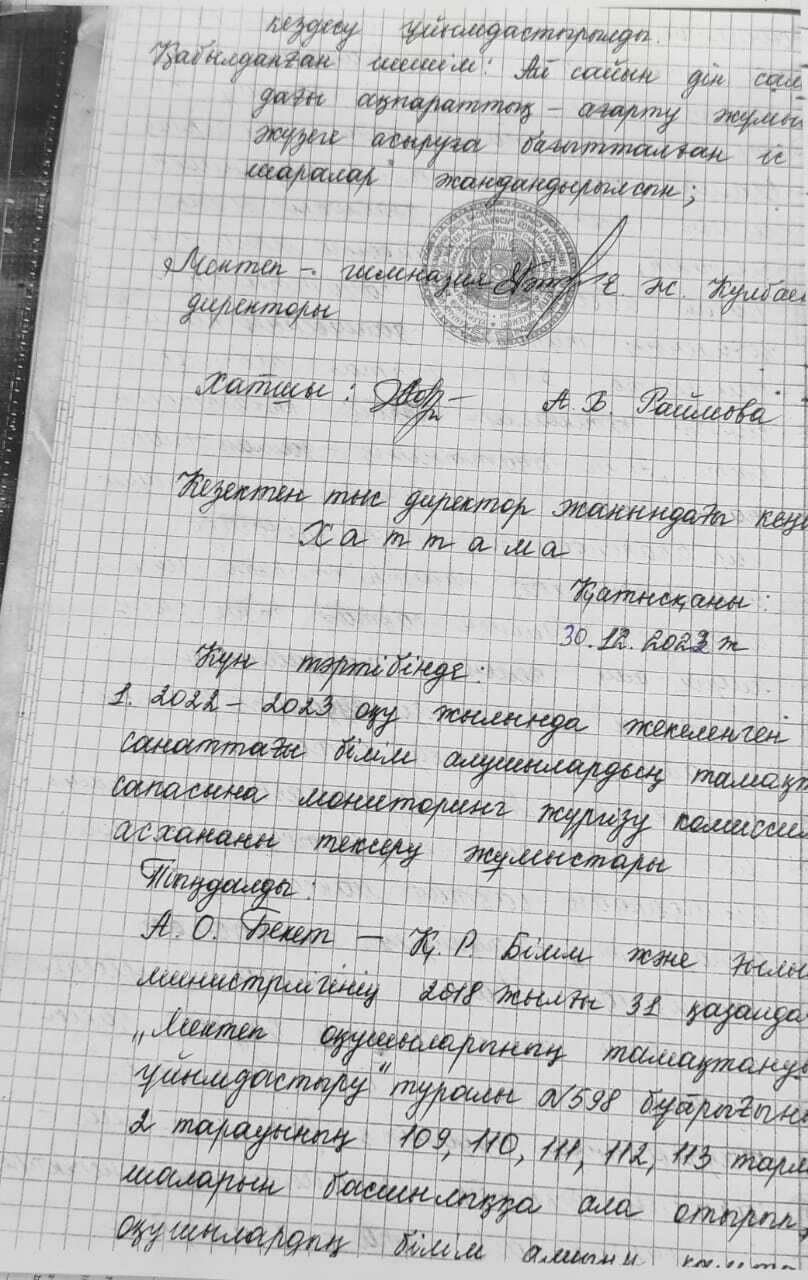 кездесу ұйымдастырылды.
Қабылданған шешім: Ай сайын дін сал
дағы ақпараттық - ағарту жұмы
жүзеге асыруға бағытталған іс
шаралар жандандырылсын;
Мектеп - гимназия Е. Ж. Кулбае
директоры
Хатшы: А. Б. Раимова
Кезектен тыс директор жанындағы кеңе
Хаттама
Қатысқаны:
30.12.2023 ж
Күн тәртібінде:
1. 2022 - 2023 оқу жылында жекеленген
санаттағы білім алушылардың тамақт
сапасына мониторинг жүргізу комиссия
асхананы тексеру жұмыстары
Тыңдалды:
А. О. Бекет - Қ. Р. Білім және ғылы
министрлігінің 2018 жылғы 31 қазанда
"Мектеп оқушыларының тамақтануы
ұйымдастыру" туралы №598 бұйрығыны
2 тарауының 109, 110, 111, 112, 113 тарм
шаларын басшылыққа ала отырып,
оқушылардың білім алшыны